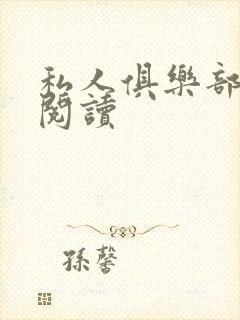 私人俱樂部
閱讀
孫馨